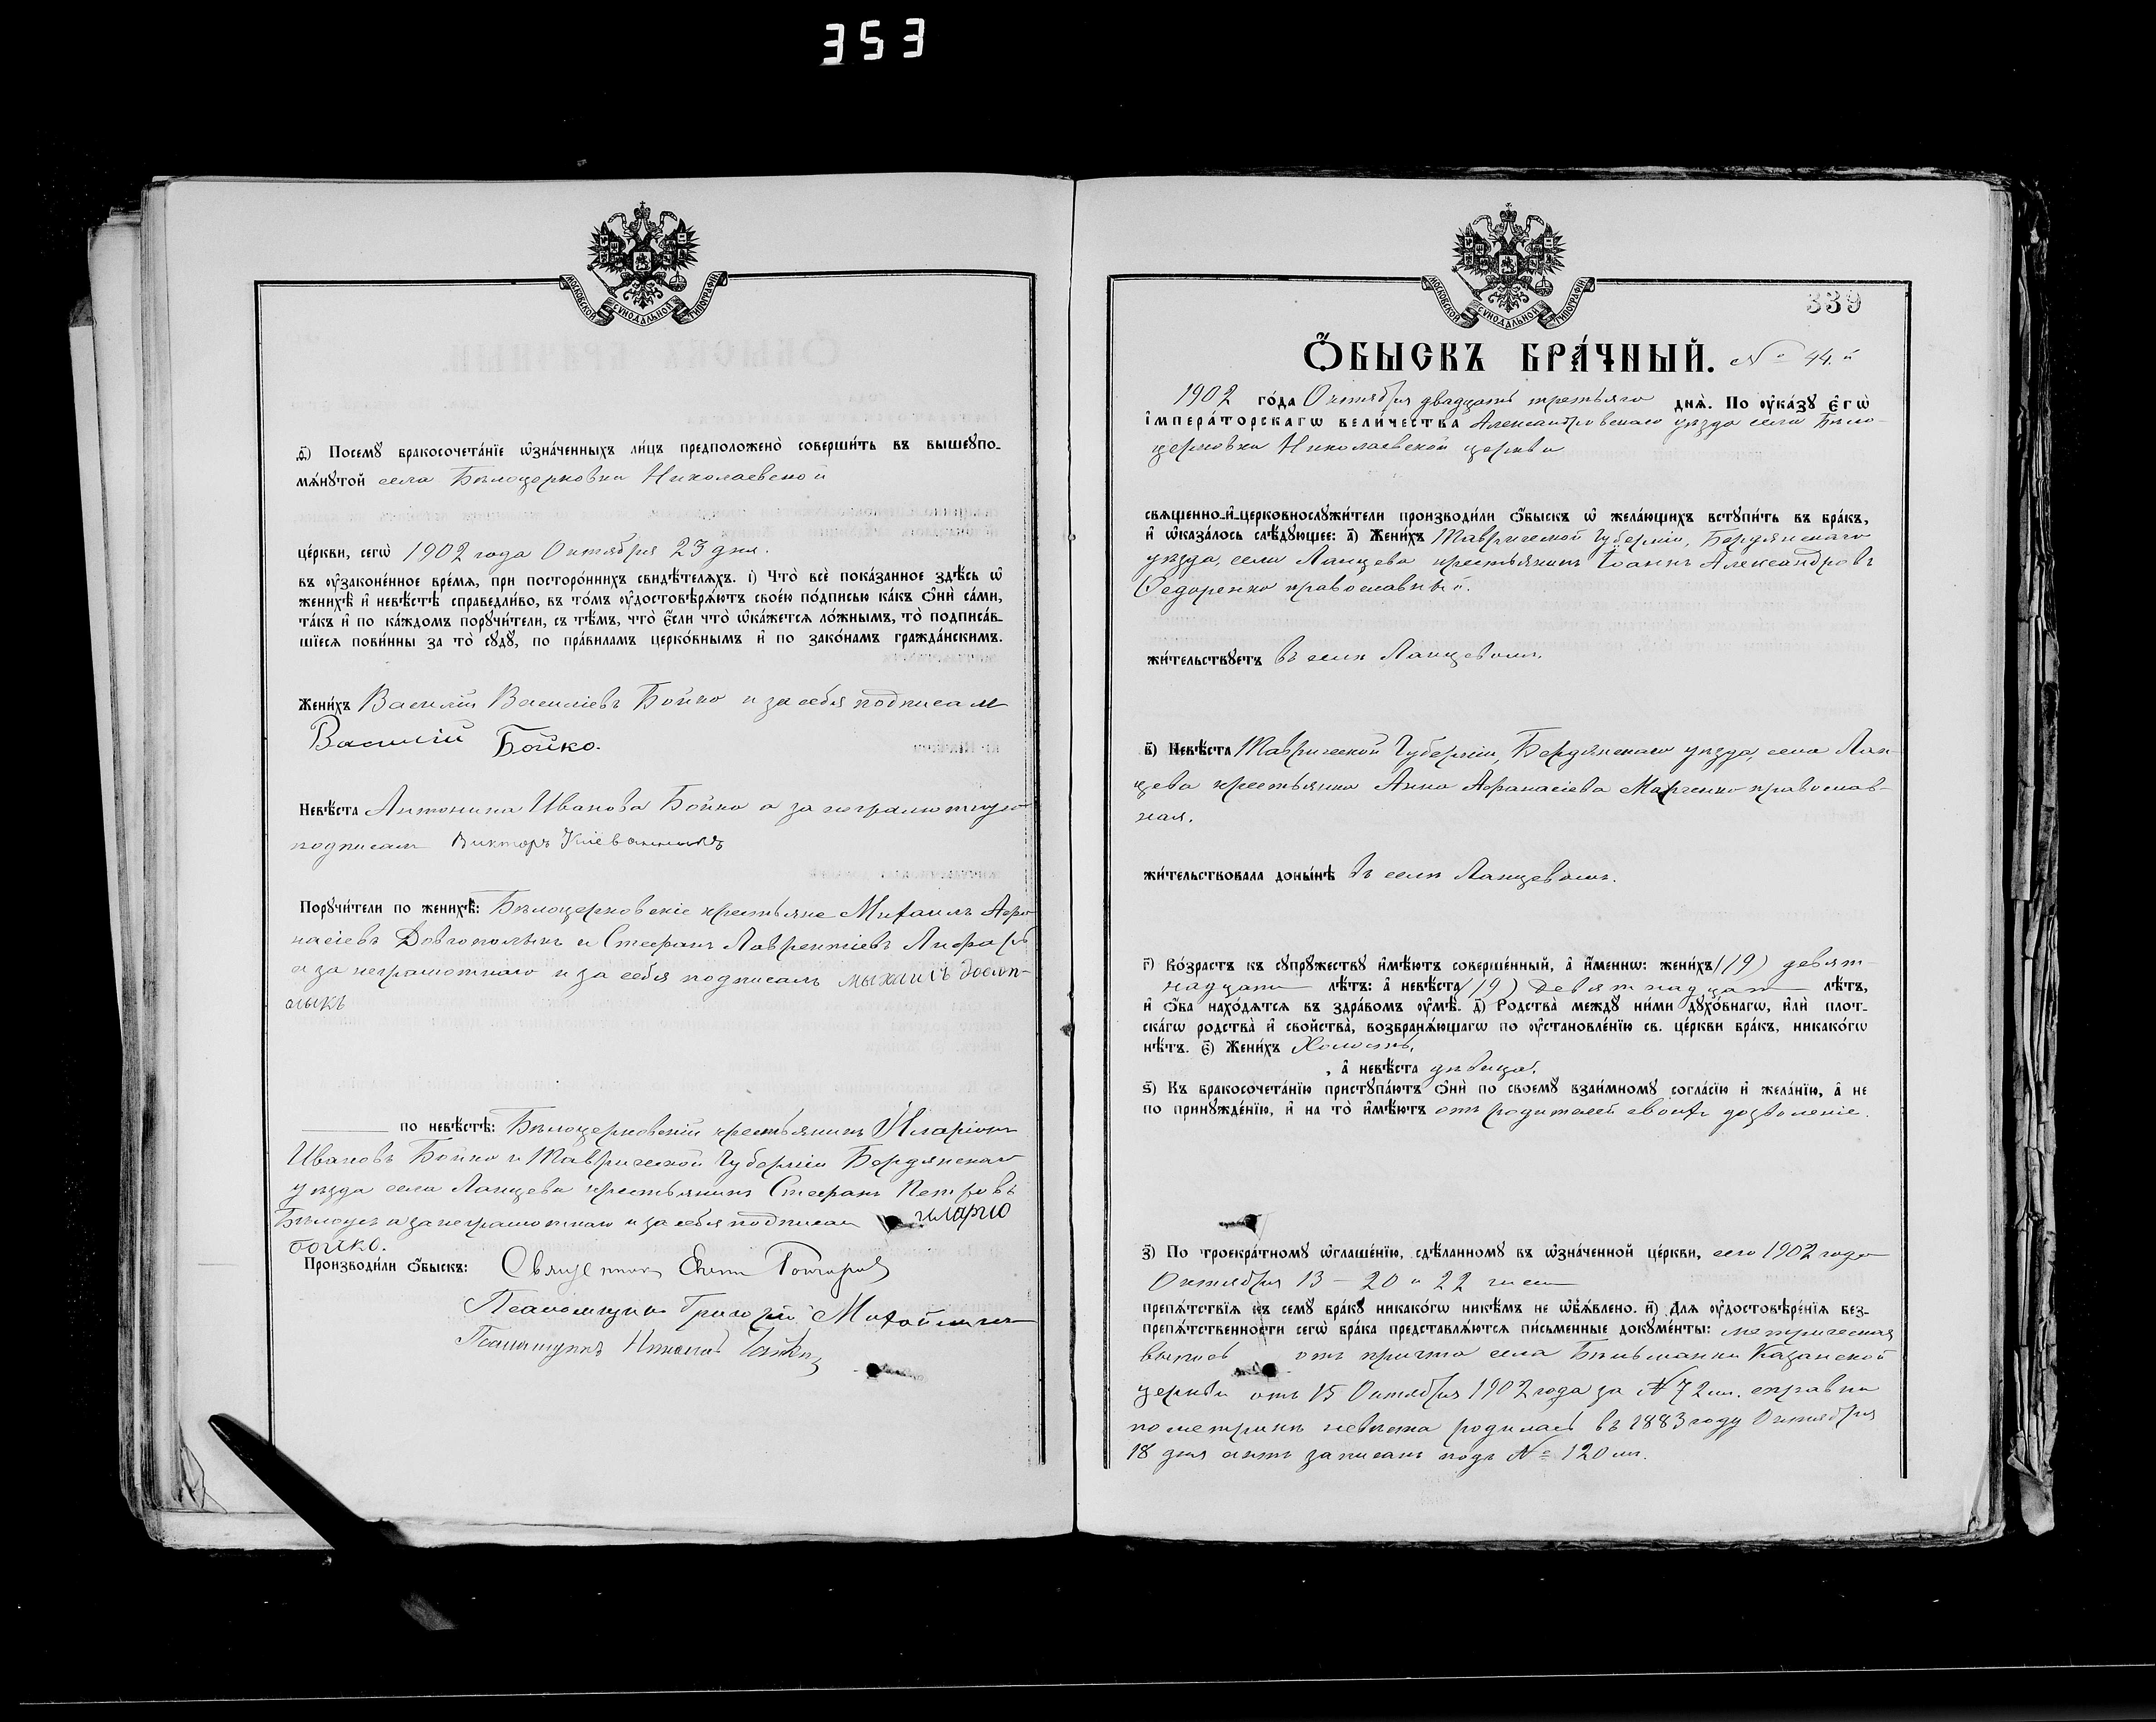 353
МОСКОВСКОЙ СѴНОДАЛЬНОЙ ТИПОГРАФІИ
ѳ҃) Посемꙋ бракосочета́нїе ѡ҆зна́ченныхъ ли́цъ предположено̀ соверши́ть въ вышеꙋпо-
мѧ́нꙋтой села Бѣлоцерковки Николаевской
це́ркви, сегѡ̀ 1902 года Октября 23 дня.
въ ᲂу҆зако́ненное вре́мѧ, при посторо́ннихъ свидѣ́телѧхъ. і҃) Что̀ всѐ пока́занное здѣ́сь ѡ҆
женихѣ̀ и҆ невѣ́стѣ справедли́во, въ то́мъ ᲂу҆достовѣрѧ́ютъ свое́ю по́дписью ка́къ ѻ҆нѝ са́ми,
та́къ и҆ по ка́ждомъ порꙋчи́тели, съ тѣ́мъ, что̀ є҆́сли что̀ ѡ҆ка́жетсѧ ло́жнымъ, то̀ подписа́в-
шїесѧ пови́нны за то̀ сꙋдꙋ̀, по пра́виламъ церко́внымъ и҆ по зако́намъ гражда́нскимъ.
Жени́хъ Василій Василіевъ Бойко и за себя подписал
Василій Бойко.
Невѣ́ста Антонина Иванова Бойко а за неграмотную
подписалъ Викторъ
Порꙋчи́тели по женихѣ̀: Бѣлоцерковскіе крестьяне Михаилъ Афа-
насіевъ Довгополыкъ и Стефанъ Лаврентіевъ
а за неграмотнаго и за себя подписалъ
по невѣ́стѣ: Бѣлоцерковскій крестьянинъ Иларіонъ
Ивановъ Бойко и Таврической Губерніи Бердянскаго
уѣзда села Ланцева крестьянинъ Стефанъ Петровъ
Бѣлоусъ а за неграмотнаго и за себя подписал иларио
бойко.
Производи́ли ѻ҆́быскъ: Священникъ
Псаломщикъ Григорій
Псаломщикъ
МОСКОВСКОЙ СѴНОДАЛЬНОЙ ТИПОГРАФІИ
339
Ѻ҆́БЫСКЪ БРА́ЧНЫЙ. № 44.й
1902 го́да Октября двадцать третьяго днѧ̀. По ᲂу҆ка́зꙋ є҆гѡ̀
і҆мпера́торскагѡ вели́чества Александровскаго уѣзда села Бѣло-
церковки Николаевской церкви
свѧщенно-и҆-церковнослꙋжи́тели производи́ли ѻ҆́быскъ ѡ҆ жела́ющихъ встꙋпи́ть въ бра́къ,
и҆ ѡ҆каза́лось слѣ́дꙋющее: а҃) Жени́хъ Таврической Губерніи, Бердянскаго
уѣзда, села Ланцева крестьянинъ Іоаннъ Александровъ
Ѳедоренко православный.
жи́тельствꙋетъ въ селѣ Ланцевомъ.
в҃) Невѣ́ста Таврической Губерніи, Бердянскаго уѣзда, села Лан-
цева крестьянка Анна Афанасіева Марченко православ-
ная.
жи́тельствовала доны́нѣ въ селѣ Ланцевомъ.
г҃) Во́зрастъ къ сꙋпрꙋ́жествꙋ и҆мѣ́ютъ соверше́нный, а҆ и҆́меннѡ: жени́хъ (19) девят-
надцать лѣ́тъ: а҆ невѣ́ста (19) девятнадцать лѣ́тъ,
и҆ ѻ҆́ба нахо́дѧтсѧ въ здра́вомъ ᲂу҆мѣ̀. д҃) Родства̀ междꙋ̀ ни́ми дꙋхо́внагѡ, и҆лѝ плот-
ска́гѡ родства̀ и҆ сво́йства̀, возбранѧ́ющагѡ по ᲂу҆становле́нїю св. це́ркви бра́къ, никако́гѡ
нѣ́тъ. є҃) Жени́хъ Холостъ,
, а҆ невѣ́ста дѣвица.
ѕ҃) Къ бракосочета́нїю пристꙋпа́ютъ ѻ҆нѝ по своемꙋ̀ взаи́мномꙋ согла́сїю и҆ жела́нїю, а҆ не
по принꙋжде́нїю, и҆ на то̀ и҆мѣ́ютъ отъ родителей своихъ дозволеніе.
з҃) По троекра́тномꙋ ѡ҆глаше́нїю, сдѣ́ланномꙋ въ ѡ҆зна́ченной це́ркви, сего 1902 года
Октября 13 – 20 и 22 числ
препѧ́тствїѧ къ семꙋ̀ бра́кꙋ никако́гѡ никѣ́мъ не ѡ҆б̾ѧ́влено. и҃) Длѧ ᲂу҆достовѣре́нїѧ без-
препѧ́тственности сегѡ̀ бра́ка представлѧ́ютсѧ пи́сьменные докꙋме́нты: метрическая
выпись отъ причта села Бѣльманки Казанской
церкви отъ 15 Октября 1902 года за № 72 м. справки
по метрикѣ невѣста родилась въ 1883 году Октября
18 дня актъ записанъ подъ № 120 м.